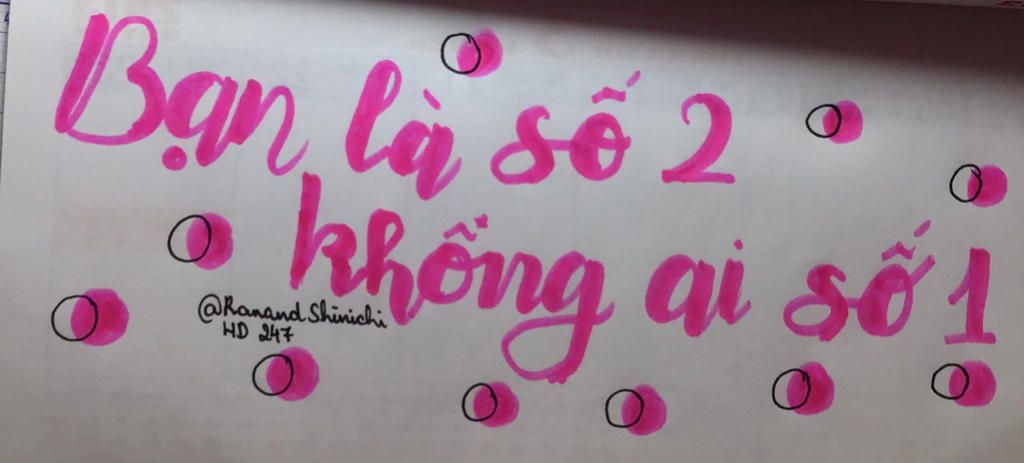 Bạn là số 2
không ai số 1
@Ranand Shinichi
HD 247